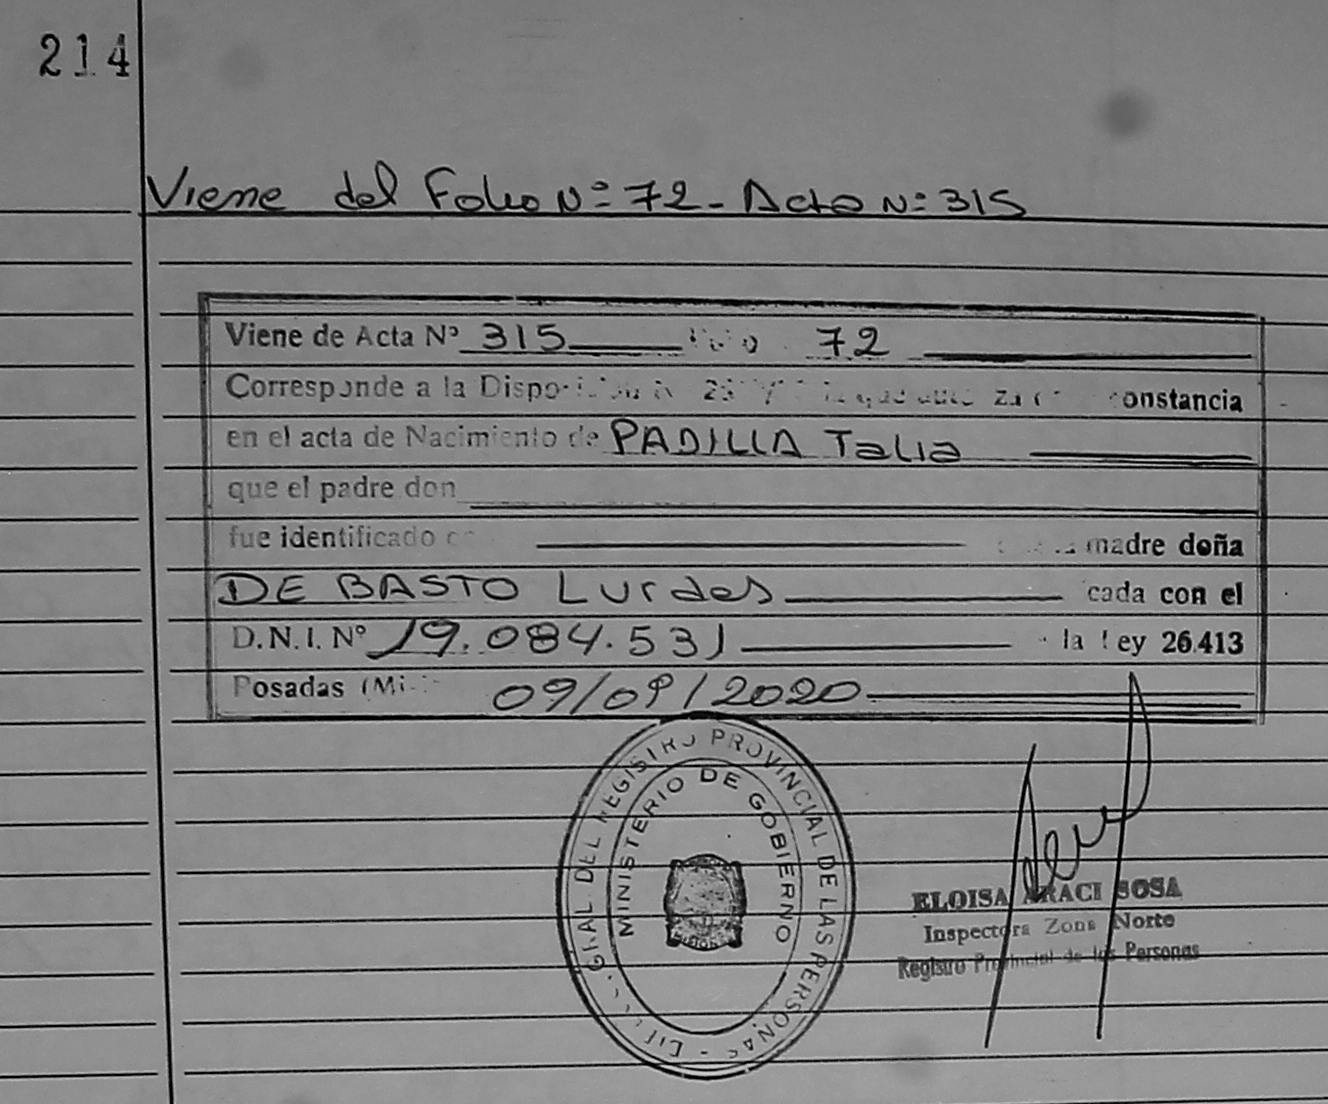 214
Viene del Folio Nº 72 - Acta Nº 315
Viene de Acta Nº 315 72
Corresponde a la constancia
en el acta de Nacimiento de PADILLA Talia
que el padre don
fue identificado madre doña
DE BASTO Lurdes cada con el
D.N.I. Nº 19.084.531 la Ley 26.413
Posadas (Mi 09/09/2020
GRAL DEL REGISTRO PROVINCIAL DE LAS PERSONAS
MINISTERIO DE GOBIERNO
ELOISA ARACI SOSA
Inspectora Zona Norte
Registro Provincial de las Personas